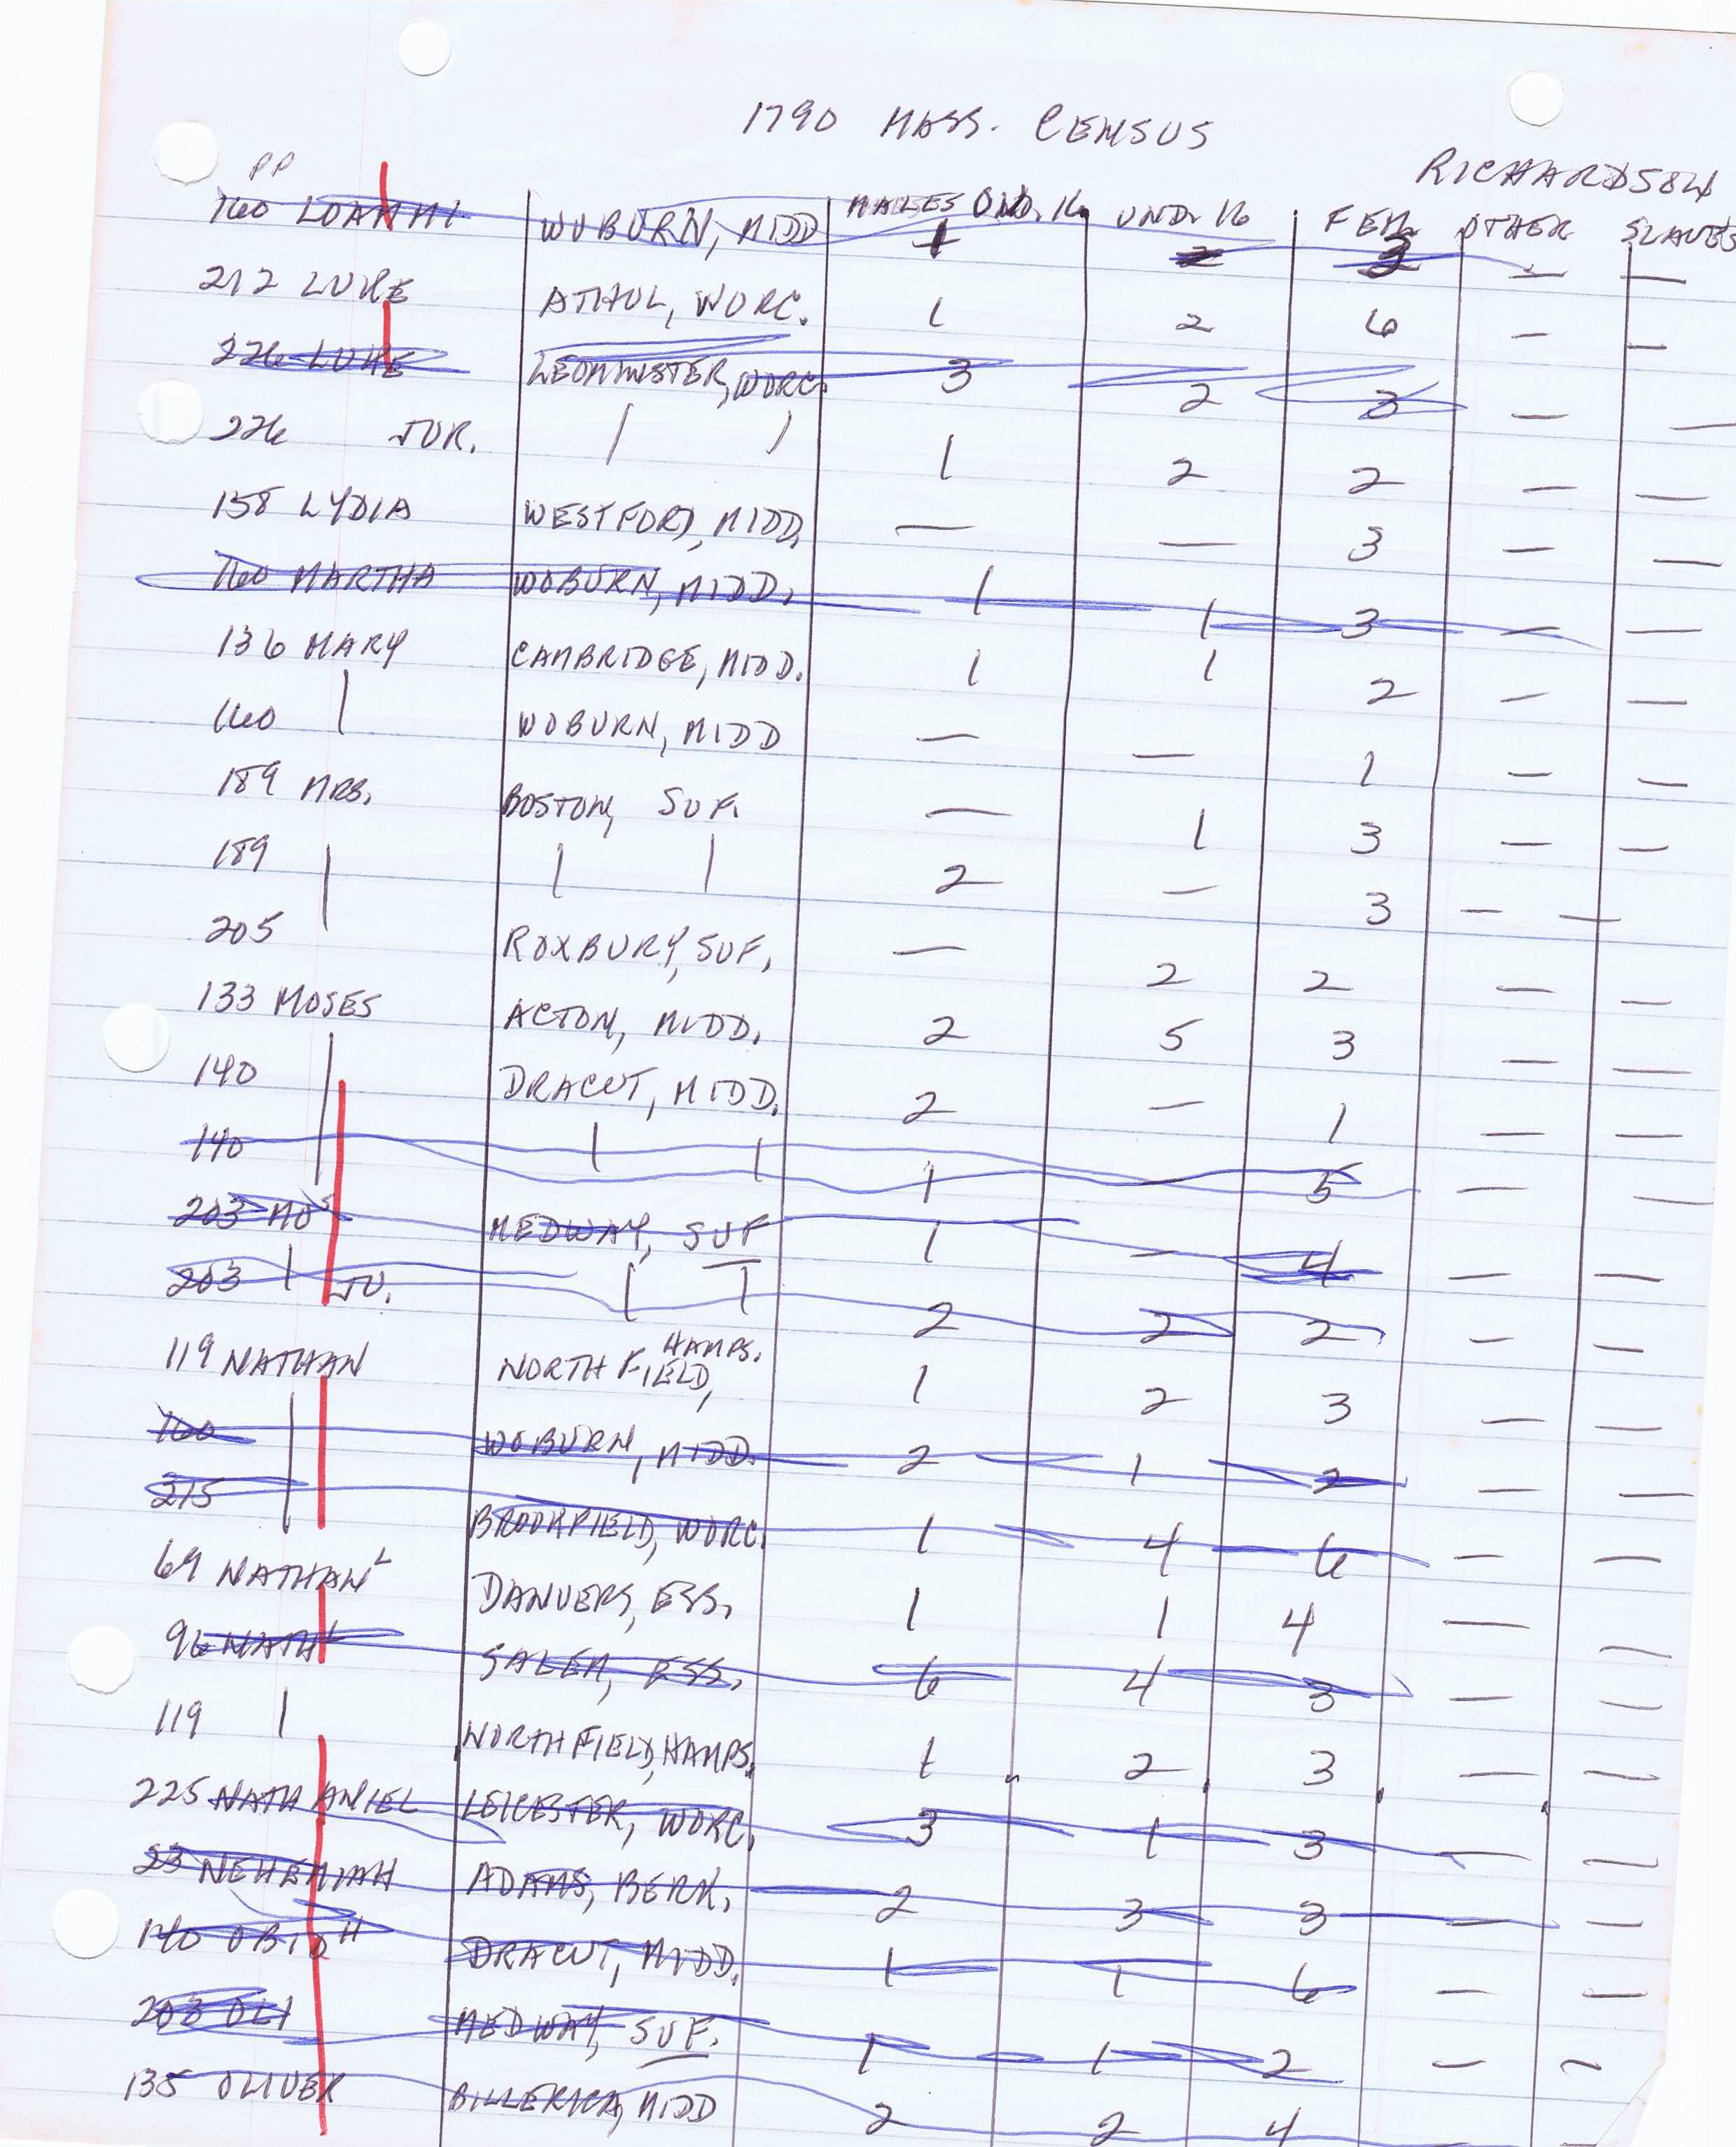 1790 MASS. CENSUS
RICHARDSON
PP MALES OVD. 16 UND. 16 FEM. OTHER SLAVES
160 LOAMMI WOBURN, MIDD 1 2 3 — —
212 LUKE ATHOL, WORC. 1 2 6 — —
226 LUKE LEOMINSTER, WORC. 3 2 3 — —
226 JUR. | | 1 2 2 — —
158 LYDIA WESTFORD, MIDD. — — 3 — —
160 MARTHA WOBURN, MIDD. 1 1 3 — —
136 MARY CAMBRIDGE, MIDD. 1 1 2 — —
160 | WOBURN, MIDD — — 1 — —
189 MRS. BOSTON, SUF. — 1 3 — —
189 | | | 2 — 3 — —
205 ROXBURY, SUF. — 2 2 — —
133 MOSES ACTON, MIDD. 2 5 3 — —
140 | DRACUT, MIDD. 2 — 1 — —
140 | | 1 — 5 — —
203 MOS MEDWAY, SUF 1 — 4 — —
203 | JU. | | 2 2 2 — —
119 NATHAN NORTHFIELD, HAMPS. 1 2 3 — —
160 | WOBURN, MIDD. 2 1 2 — —
215 BROOKFIELD, WORC. 1 4 6 — —
69 NATHANL DANVERS, ESS. 1 1 4 — —
96 NATHL SALEM, ESS. 6 4 3 — —
119 | NORTHFIELD, HAMPS. 1 2 3 — —
225 NATHANIEL LEICESTER, WORC. 3 1 3 — —
23 NEHEMIAH ADAMS, BERK. 2 3 3 — —
140 OBIDH DRACUT, MIDD. 1 1 6 — —
203 OLI MEDWAY, SUF. 1 1 2 — —
135 OLIVER BILLERICA, MIDD 2 2 4 — —